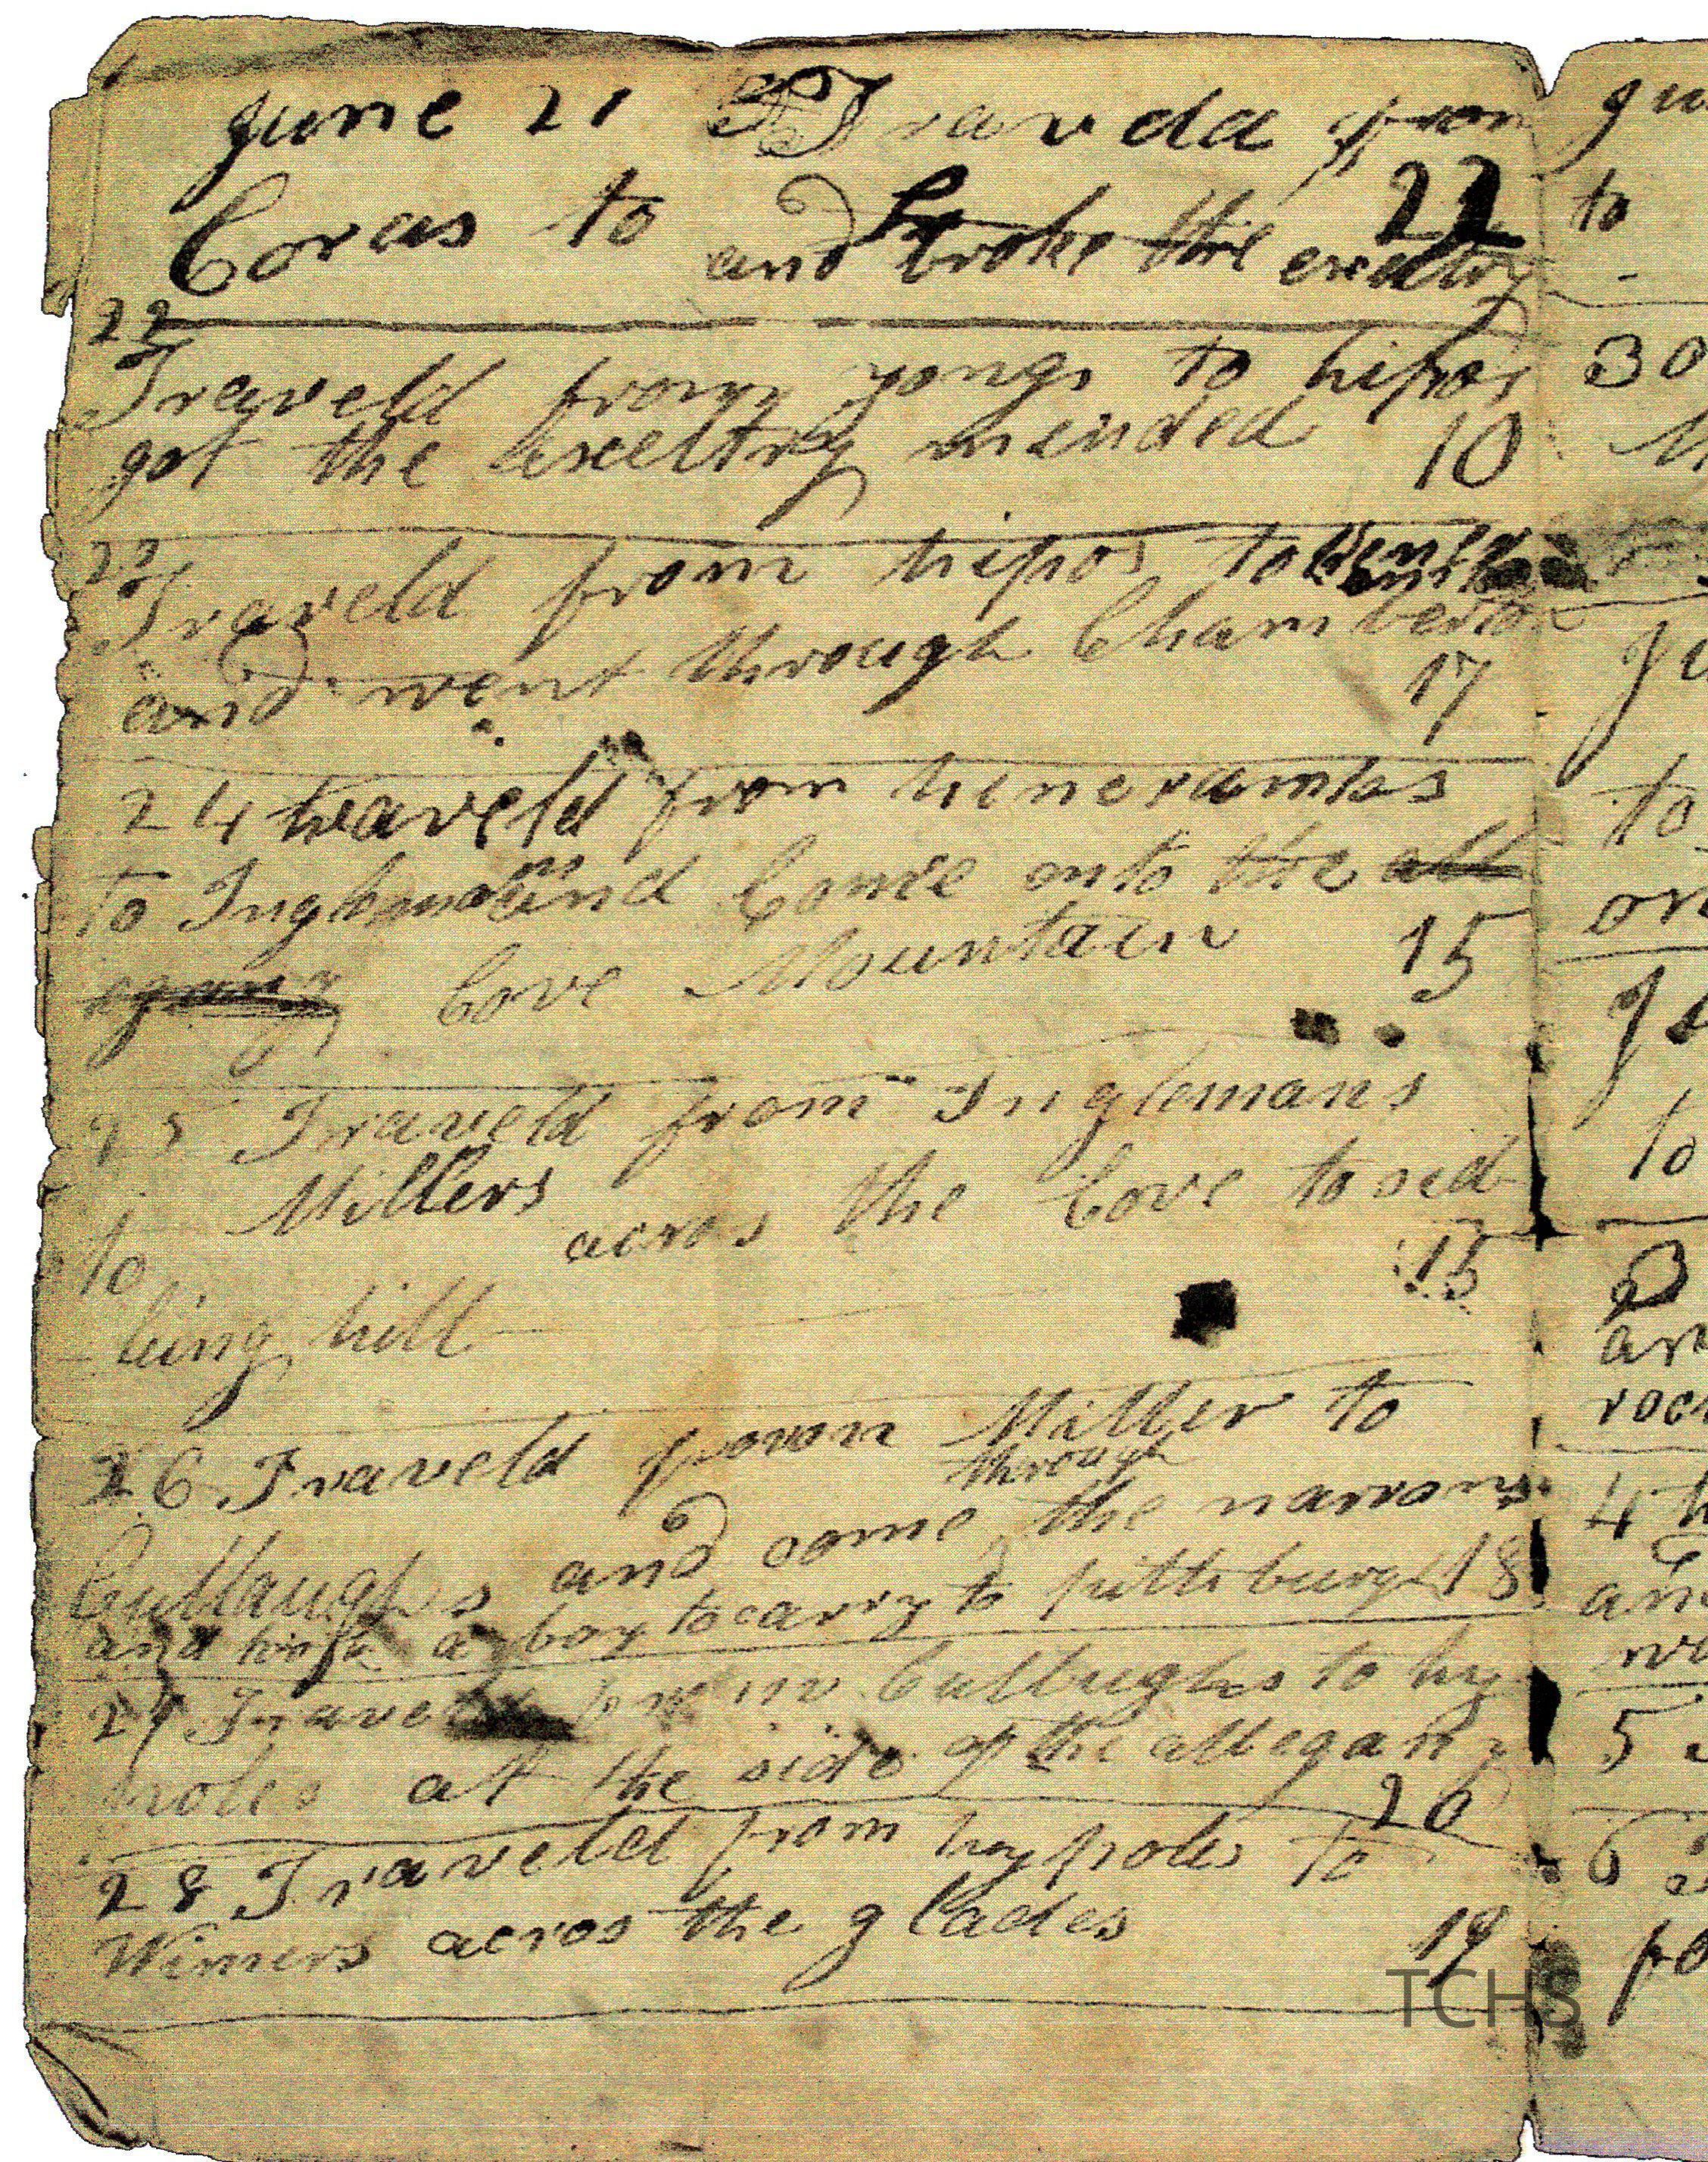 June 21 Traveld from
Coras to 22
and broke the exeltry
22
Traveld from yongs to hipos
got the axeeltry minded 10
23
Traveld from hipos to
and went through Chamber
17
24 traveld from hinerambs
to and Come onto the all
egany Cove Mountain 15
25 Traveld from Inglemans
to Millers
across the Cove to sid
15
ling hill
26 Traveld from Miller to
through
Cullaughs and come the narrows
and took a boy to carry to pittsburgh 18
27 Traveld from Cullughs to hy
poles at the side of the allegany
20
28 Traveld from hoy poles to
Wimers acros the glades
19
TCHS
Ju
to
30
M
Ju
to
on
Ju
to
3
an
roc
4 t
an
5
6
po